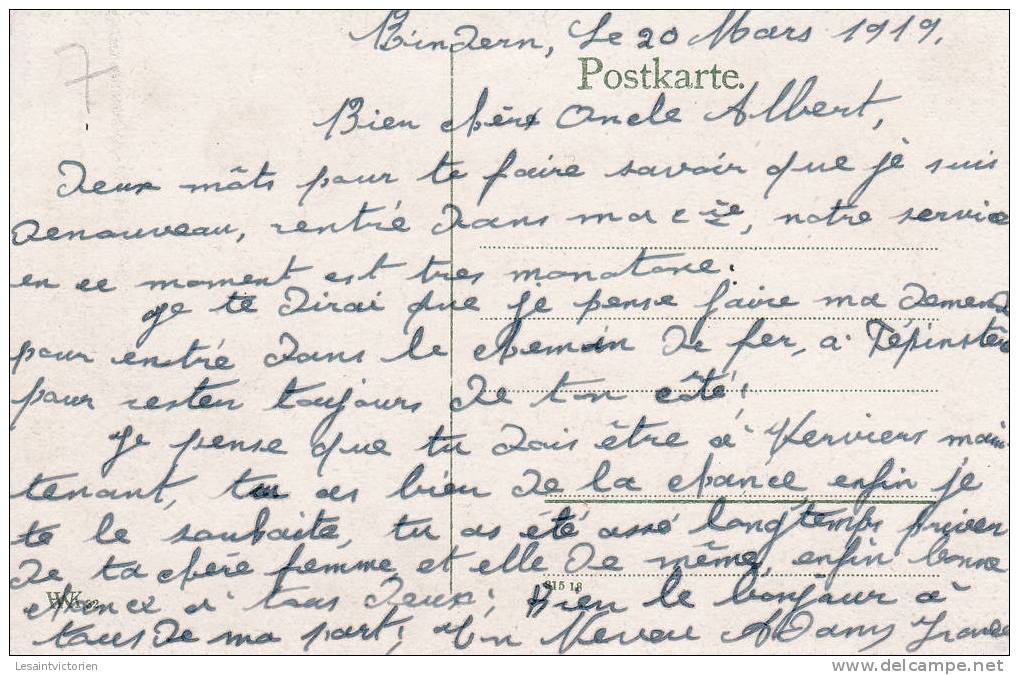 7
Binzern, Le 20 Mars 1919.
Postkarte.
Bien chère Oncle Albert,
Deux mâts pour te faire savoir que je suis
Denouveau, rentré dans ma cie, notre service
en ce moment est tres monotone.
je te dirai que je pense faire ma demend
pour entré dans le chemin de fer, a Pépinster
pour resten toujours de ton côté!
Je pense que tu dois être à Verviers main
tenant, tu as bien de la chance enfin je
te le souhaite, tu as été assé longtemps priver
de ta chère femme et elle de même, enfin bonne
chance a tous deux; Bien le bonjour à
HWK 32
815 18
tous de ma part; Ton Neveu
Lesaintvictorien
delcampe.net